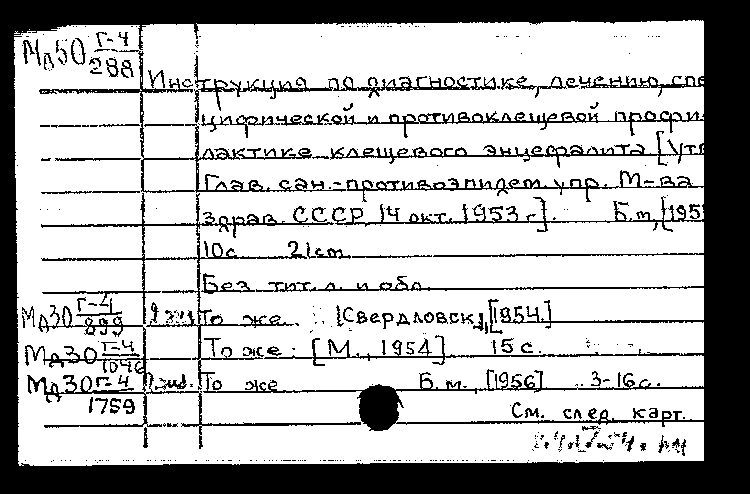 Мд50 Г-4
288
Инструкция по диагностике, лечению, спе
цифической и противоклещевой профи-
лактике клещевого энцефалита [Утв
Глав. сан.-противоэпидем. упр. М-ва
здрав. СССР 14 окт. 1953 г.]. Б.м., [195
10 с. 21 см.
Без тит. л. и обл.
Мд30 Г-4
899 То же. [Свердловск], [1954.]
Мд30 Г-4
1046 То же: [М., 1954] 15 с.
Мд30 Г-4
1759 То же Б. м., [1956] 3-16 с.
См. след. карт.